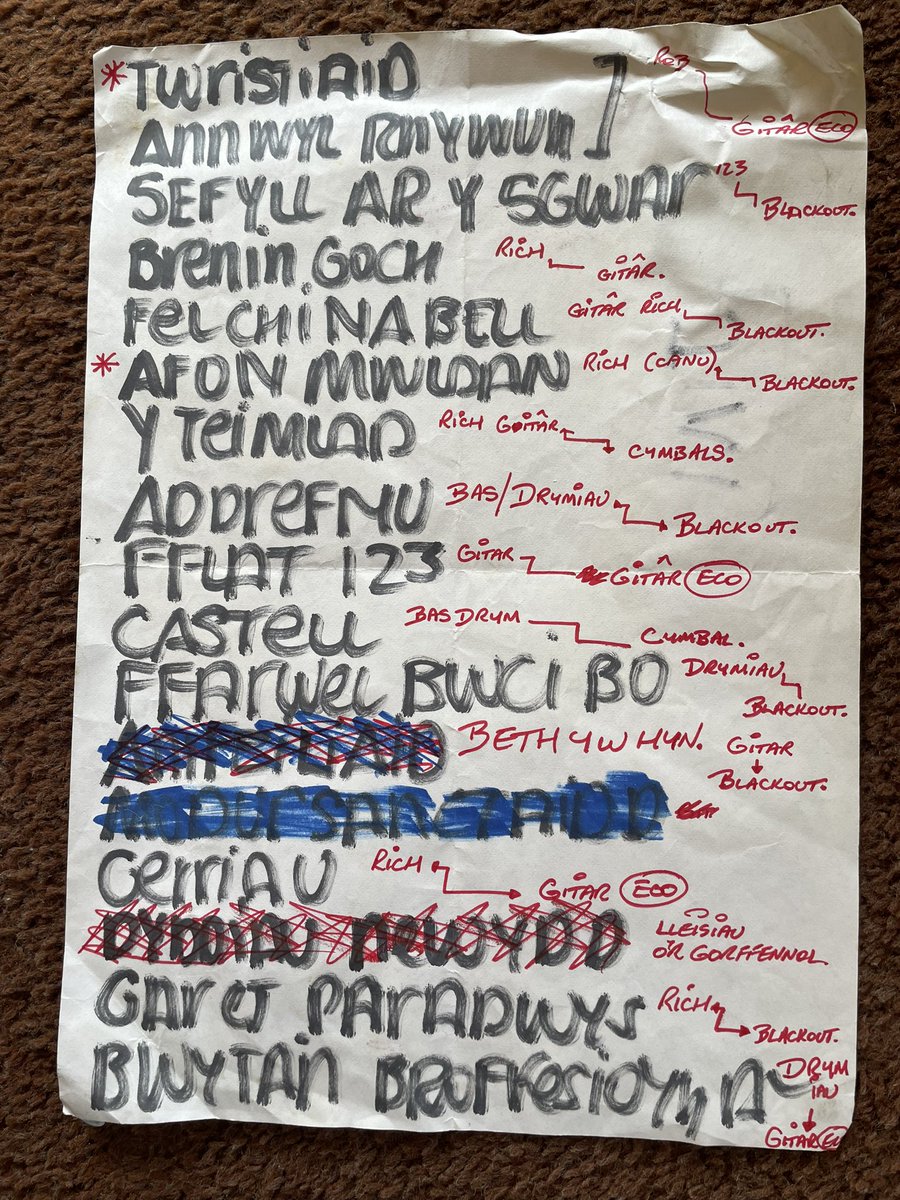 * TWristiAiD ] ROB GITÂR ECO
ANNWYL RHYWUN
SEFYLL AR Y SGWAr 123 BLACKOUT.
Brenin GOCH RICH GITÂR.
FeLCHi NA BELL GITÂR RICH BLACKOUT.
* AFON MWLDAN RICH (CANU) BLACKOUT.
Y TeiMLAD RICH GOITÂR CYMBALS.
ADDreFNU BAS/DRYMIAU BLACKOUT.
FFLAT 123 GITAR GITÂR ECO
CASTeLL BASDRYM CYMBAL.
FFArWeL BWCI BO DRYMIAU BLACKOUT.
BETH YW HYN. GITAR BLACKOUT.
CerriAU RICH GITAR ECO
DYDDIAU NEWYDD LLEISIAU O'R GORFFENNOL
GAreJ PArADWYS RICH BLACKOUT.
BWYTAN DRYMIAU GITÂR